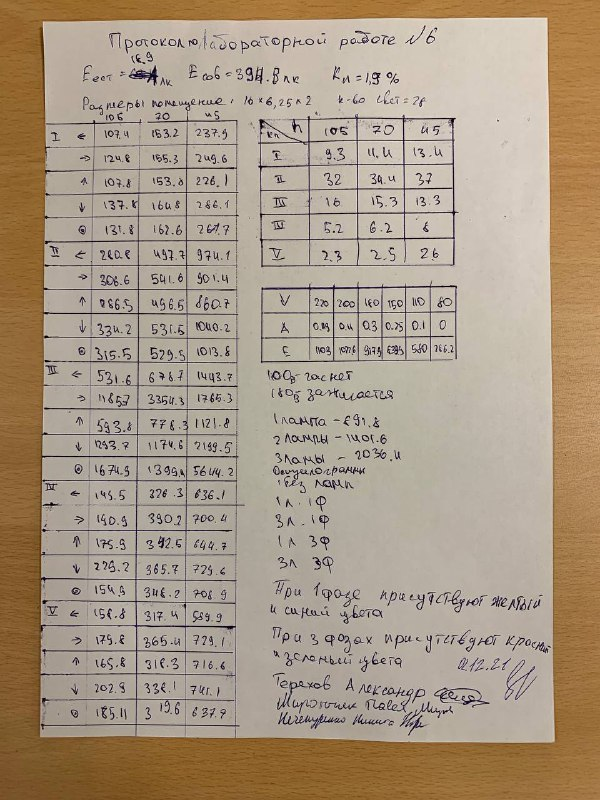 Протокол к лабораторной работе №6
16.9
Еест = лк Есов = 394.8 лк Кп = 1,9 %
Размеры помещение: 16 × 6,25 × 2 к-во свет = 28
105 70 45
I ← 107.4 153.2 237.9
→ 124.8 155.3 249.6
↑ 107.8 153.8 226.1
↓ 137.8 164.8 286.1
⊙ 131.8 162.6 267.7
II ← 280.8 497.7 974.1
→ 306.6 541.6 901.4
↑ 286.5 496.5 860.7
↓ 334.2 531.5 1040.2
⊙ 315.5 529.5 1013.8
III ← 531.6 678.7 1443.7
→ 1185.7 3354.3 1765.3
↑ 593.8 778.3 1121.8
↓ 1293.7 1174.6 2199.5
⊙ 1674.9 1399.4 5644.2
IV ← 149.5 326.3 636.1
→ 190.9 390.2 700.4
↑ 175.9 342.5 644.7
↓ 229.2 365.7 729.6
⊙ 154.9 346.2 708.9
V ← 158.8 317.4 589.9
→ 179.8 365.4 729.1
↑ 165.8 318.3 716.6
↓ 202.9 338.1 741.1
⊙ 185.11 319.6 637.9
Кп h 105 70 45
I 9.3 11.4 13.4
II 32 34.4 37
III 16 15.3 13.3
IV 5.2 6.2 8
V 2.3 2.5 26
V 220 200 180 150 110 80
A 0.4 0.3 0.25 0.1 0
E 580 266.2
100В - гаснет
180В - зажигается
1 лампа - 691.8
2 лампы - 1401.6
3 лампы - 2036.4
Осциллограммы
без ламп
1л. 1Ф
3л. 1Ф
1л 3Ф
3л 3Ф
При 1 фазе присутствуют желтый
и синий цвета
При 3 фазах присутствуют красный
и зеленый цвета
01.12.21
Терехов Александр
Павел
Никита